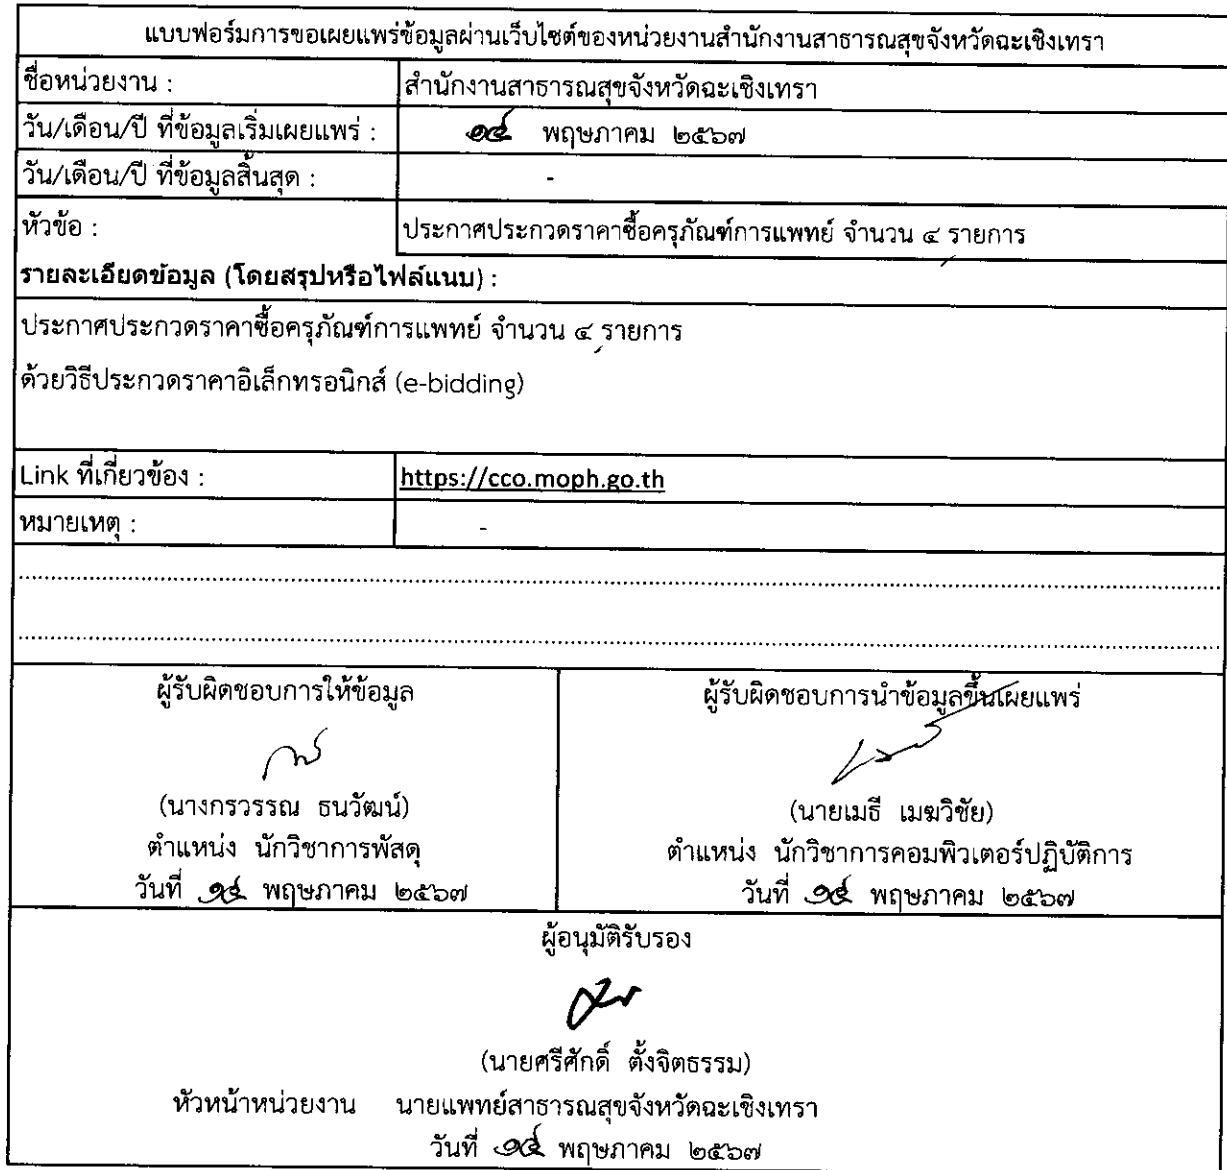 แบบฟอร์มการขอเผยแพร่ข้อมูลผ่านเว็บไซต์ของหน่วยงานสำนักงานสาธารณสุขจังหวัดฉะเชิงเทรา
ชื่อหน่วยงาน : สำนักงานสาธารณสุขจังหวัดฉะเชิงเทรา
วัน/เดือน/ปี ที่ข้อมูลเริ่มเผยแพร่ : ๑๔ พฤษภาคม ๒๕๖๗
วัน/เดือน/ปี ที่ข้อมูลสิ้นสุด : -
หัวข้อ : ประกาศประกวดราคาซื้อครุภัณฑ์การแพทย์ จำนวน ๔ รายการ
รายละเอียดข้อมูล (โดยสรุปหรือไฟล์แนบ) :
ประกาศประกวดราคาซื้อครุภัณฑ์การแพทย์ จำนวน ๔ รายการ
ด้วยวิธีประกวดราคาอิเล็กทรอนิกส์ (e-bidding)
Link ที่เกี่ยวข้อง : https://cco.moph.go.th
หมายเหตุ : -
ผู้รับผิดชอบการให้ข้อมูล
(นางกรวรรณ ธนวัฒน์)
ตำแหน่ง นักวิชาการพัสดุ
วันที่ ๑๔ พฤษภาคม ๒๕๖๗
ผู้รับผิดชอบการนำข้อมูลขึ้นเผยแพร่
(นายเมธี เมฆวิชัย)
ตำแหน่ง นักวิชาการคอมพิวเตอร์ปฏิบัติการ
วันที่ ๑๔ พฤษภาคม ๒๕๖๗
ผู้อนุมัติรับรอง
(นายศรีศักดิ์ ตั้งจิตธรรม)
หัวหน้าหน่วยงาน นายแพทย์สาธารณสุขจังหวัดฉะเชิงเทรา
วันที่ ๑๔ พฤษภาคม ๒๕๖๗